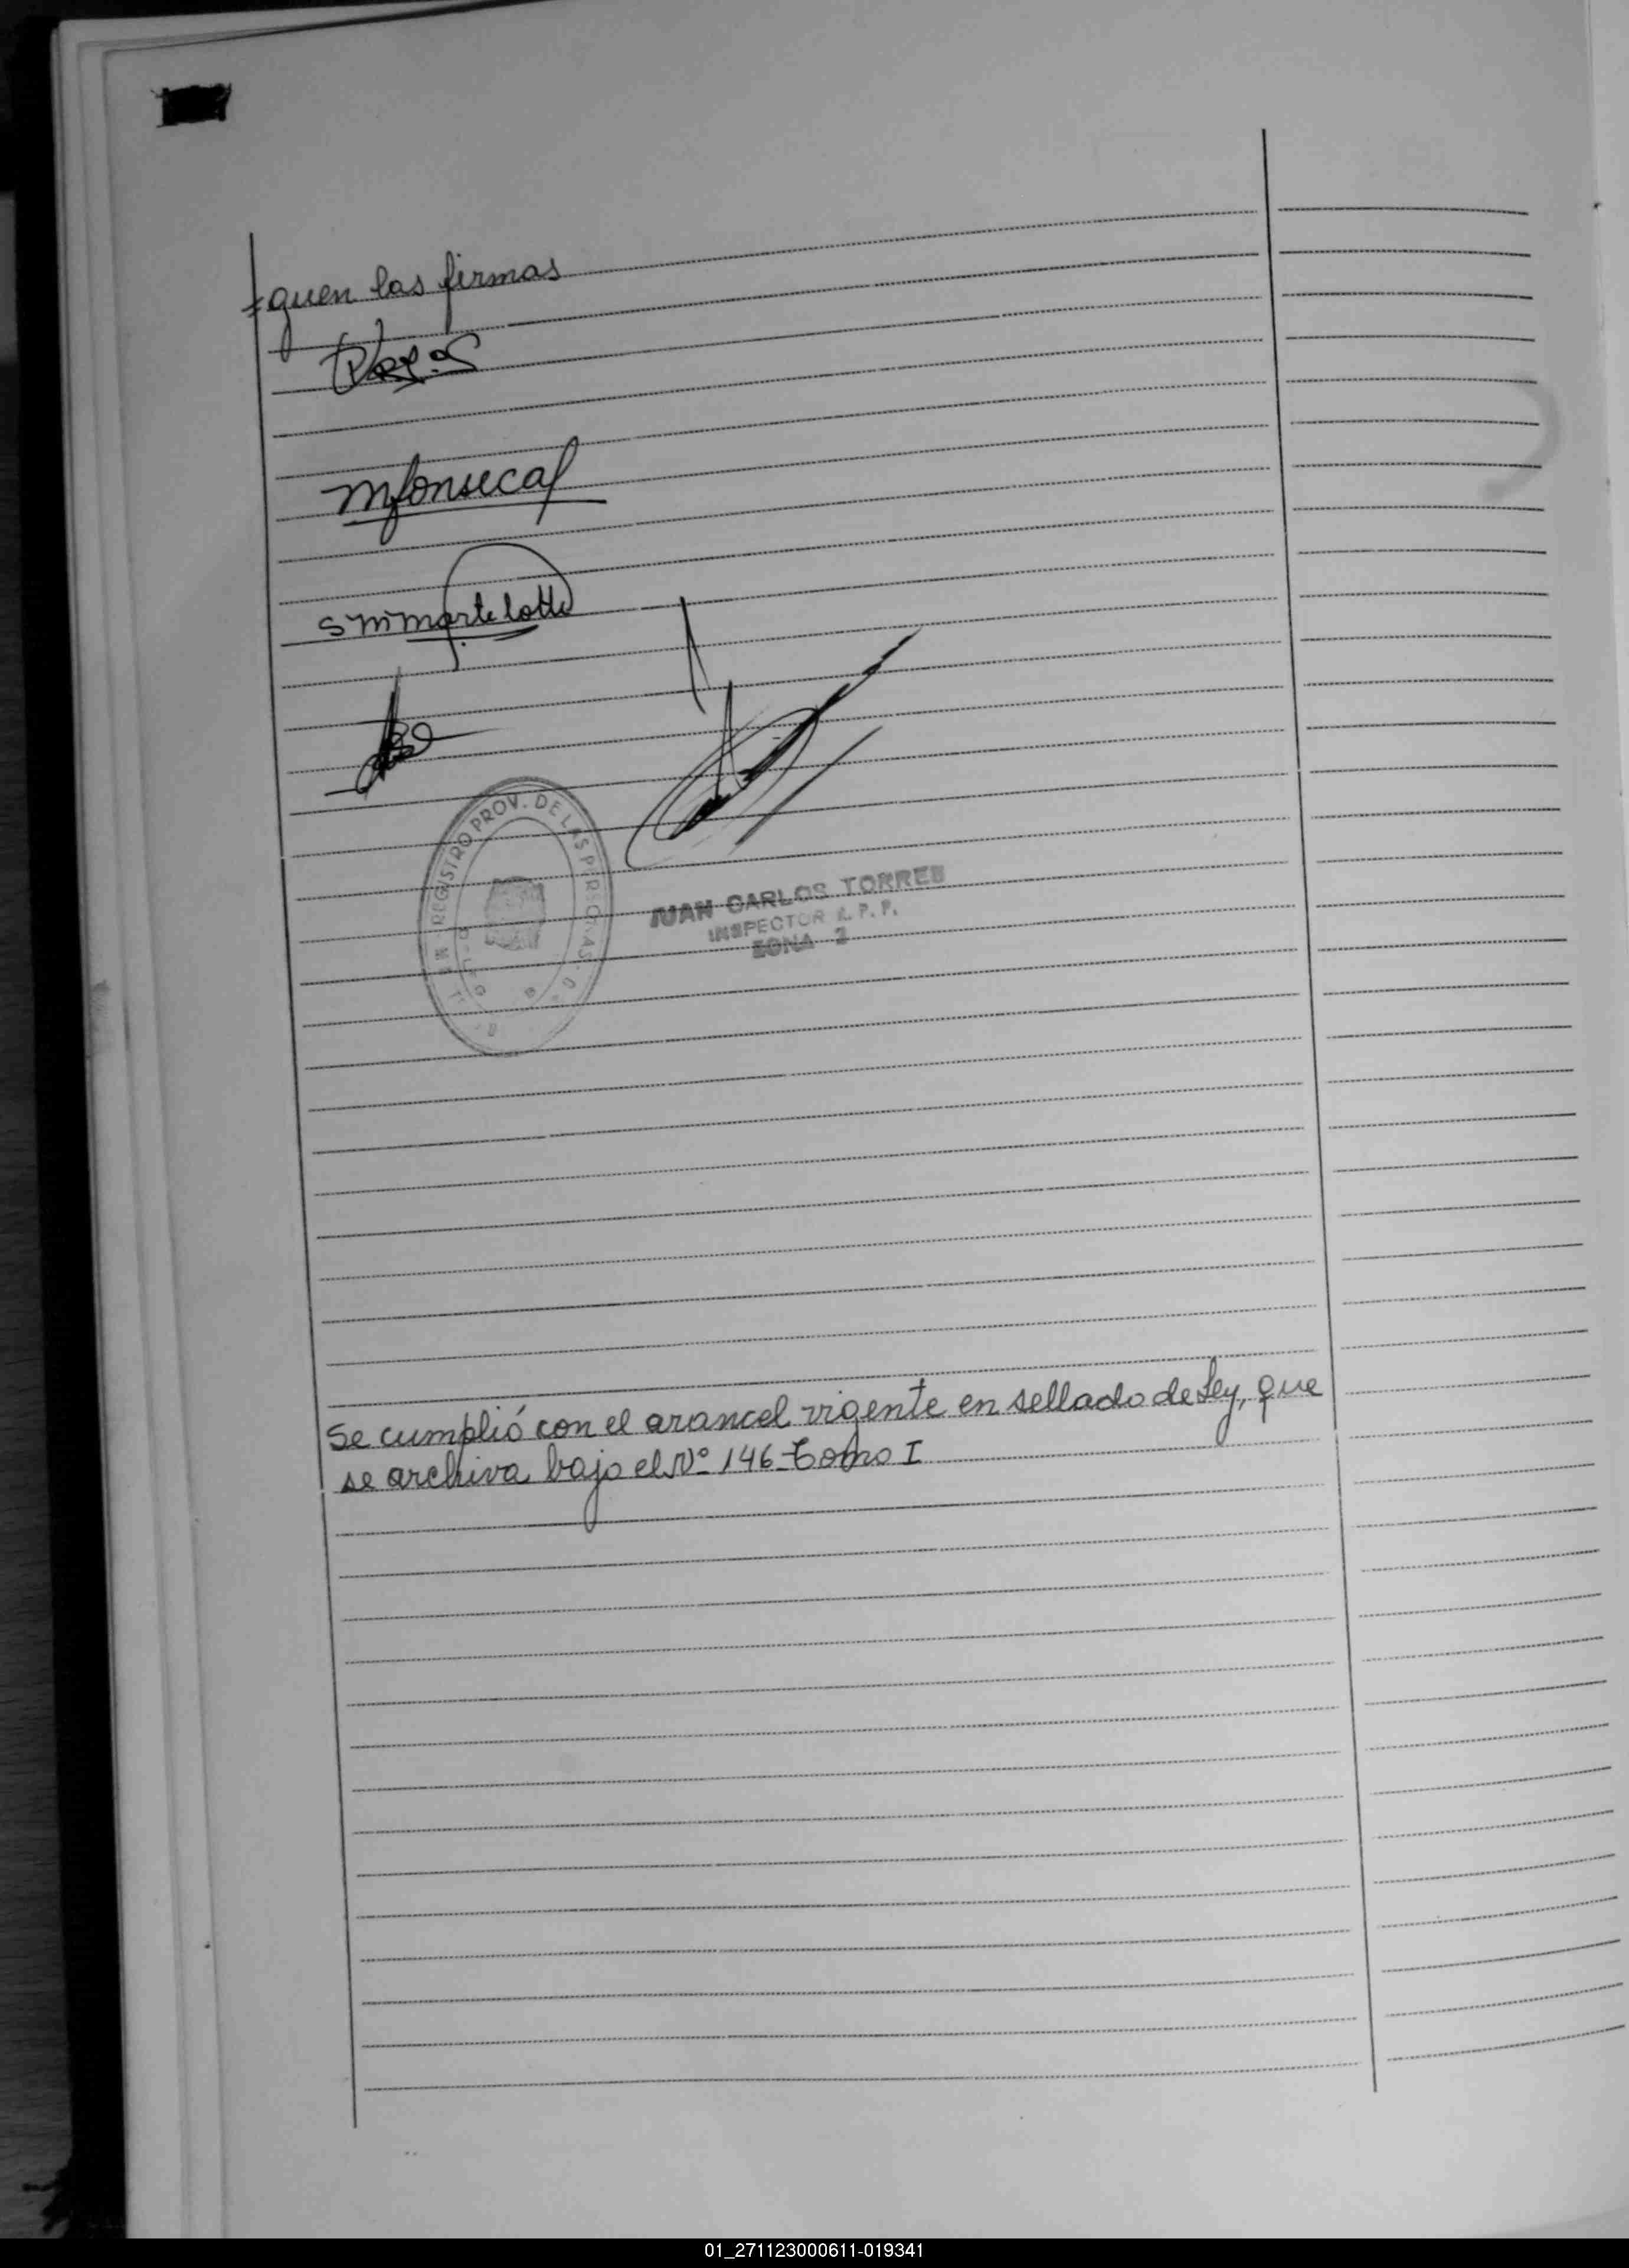 =guen las firmas
mfonseca
smmartelotto
REGISTRO PROV. DE LAS PERSONAS
JUAN CARLOS TORRES
INSPECTOR R. P. P.
ZONA 2
Se cumplió con el arancel vigente en sellado de Ley, que
se archiva bajo el Nº 146 Tomo I
01_271123000611-019341